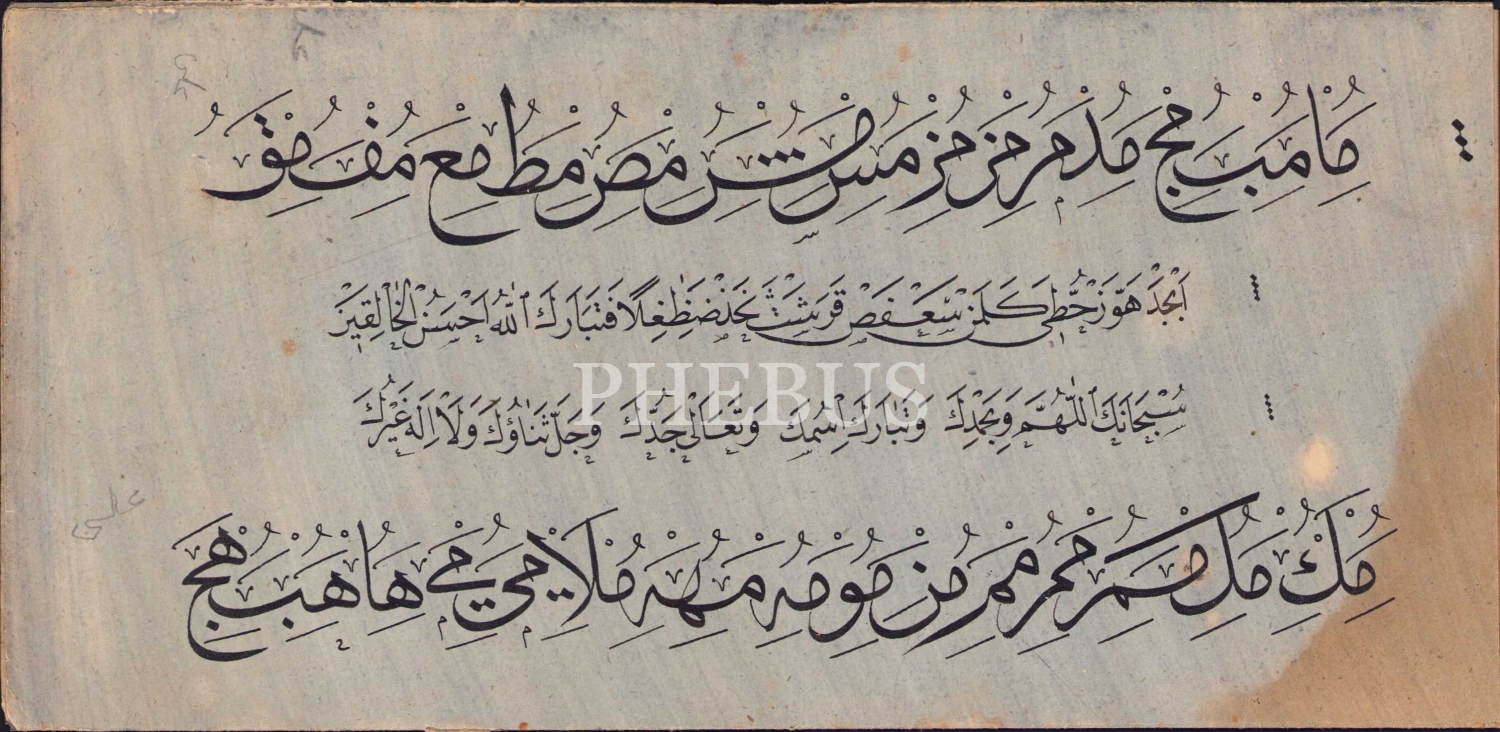 ما مب مج مد مر مز مز مس مش مص مط مع مف مق
اَبْجَدْ هَوَّزْ حُطِّي كَلَمَنْ سَعْفَصْ قَرَشَتْ ثَخَذْ ضَظَغِلًا فَتَبَارَكَ اللّٰهُ اَحْسَنُ الْخَالِقِينَ
PHEBUS
سُبْحَانَكَ اللّٰهُمَّ وَبِحَمْدِكَ وَتَبَارَكَ اسْمُكَ وَتَعَالَى جَدُّكَ وَجَلَّ ثَنَاؤُكَ وَلَا اِلٰهَ غَيْرُكَ
مك مل مم مم مم من مو مه مهه ملا مي مي ها هب هج